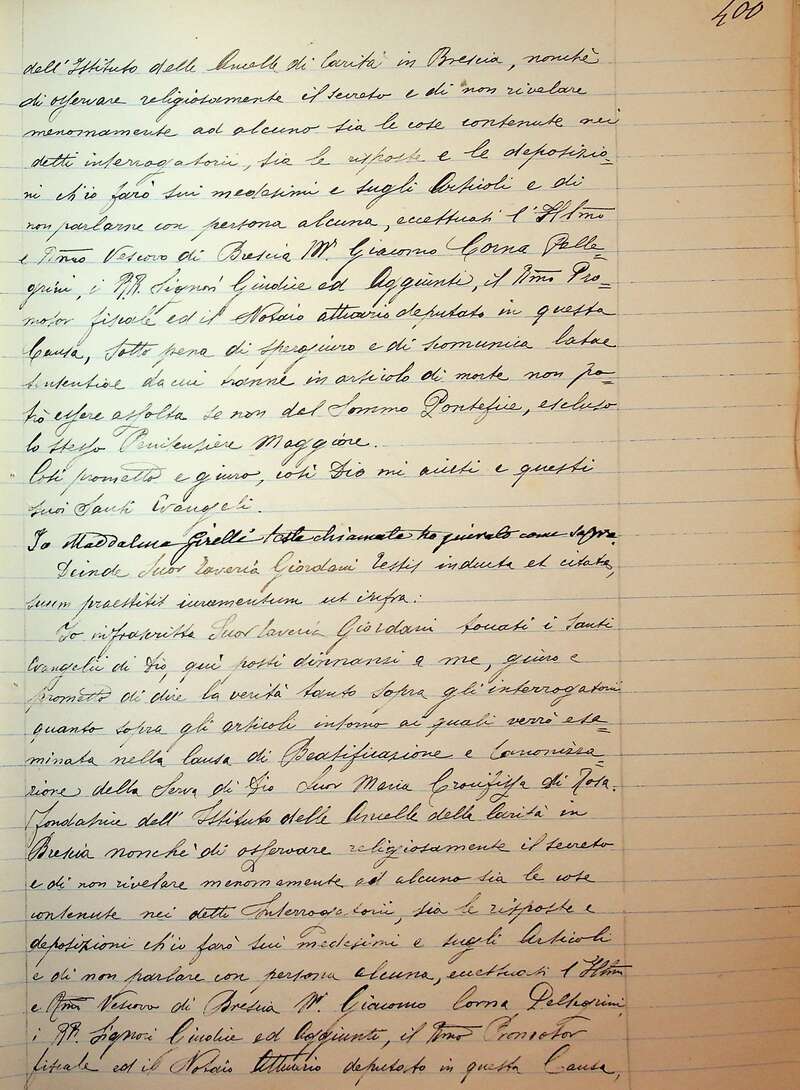 400
dell'Istituto delle Ancelle di Carità in Brescia, nonchè
di osservare religiosamente il secreto e di non rivelare
menomamente ad alcuno sia le cose contenute nei
detti interrogatorii, sia le risposte e le deposizio=
ni ch'io farò sui medesimi e sugli Articoli e di
non parlarne con persona alcuna, eccettuati l'Illmo
e Rmo Vescovo di Brescia Mr Giacomo Corna Pelle=
grini, i RR. Signori Giudice ed Aggiunti, il Rmo Pro=
motor fiscale ed il Notaio attuario deputato in questa
Causa, sotto pena di spergiuro e di scomunica latae
sententiae da cui tranne in articolo di morte non po=
trò essere assolta se non dal Sommo Pontefice, escluso
lo stesso Penitenziere Maggiore.
Così prometto e giuro, così Dio mi aiuti e questi
suoi Santi Evangeli.
Io Maddalena Girelli teste chiamata ho giurato come sopra.
Deinde Suor Saveria Giordani Testis inducta et citata,
suum praestitit iuramentum ut infra:
Io infrascritta Suor Saveria Giordani toccati i Santi
Evangelii di Dio, qui posti dinnanzi a me, giuro e
prometto di dire la verità tanto sopra gli interrogatorii
quanto sopra gli articoli intorno ai quali verrò esa=
minata nella Causa di Beatificazione e Canonizza=
zione della Serva di Dio Suor Maria Crocifissa Di Rosa.
fondatrice dell' Istituto delle Ancelle della Carità in
Brescia nonchè di osservare religiosamente il secreto
e di non rivelare menomamente ad alcuno sia le cose
contenute nei detti Interrogatorii, sia le risposte e
deposizioni ch'io farò sui medesimi e sugli Articoli
e di non parlare con persona alcuna, eccettuati l'Illmo
e Rmo Vescovo di Brescia Mr. Giacomo Corna Pellegrini,
i RR. Signori Giudice ed Aggiunti, il Rmo Promotor
fiscale ed il Notaio Attuario deputato in questa Causa,